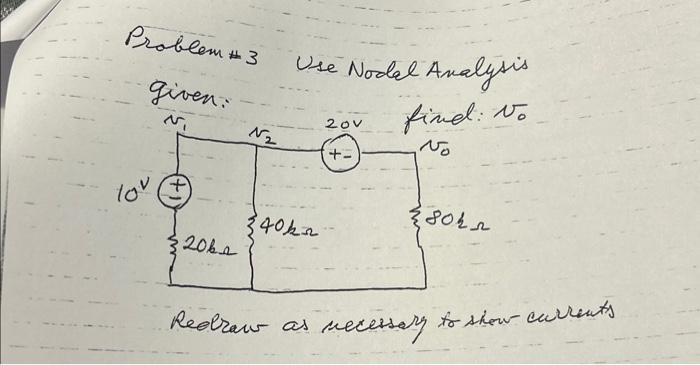 Problem #3 Use Nodal Analysis
given: find: v₀
v₁ v₂ 20V v₀
+ -
10V + -
40kΩ 80kΩ
20kΩ
Redraw as necessary to show currents